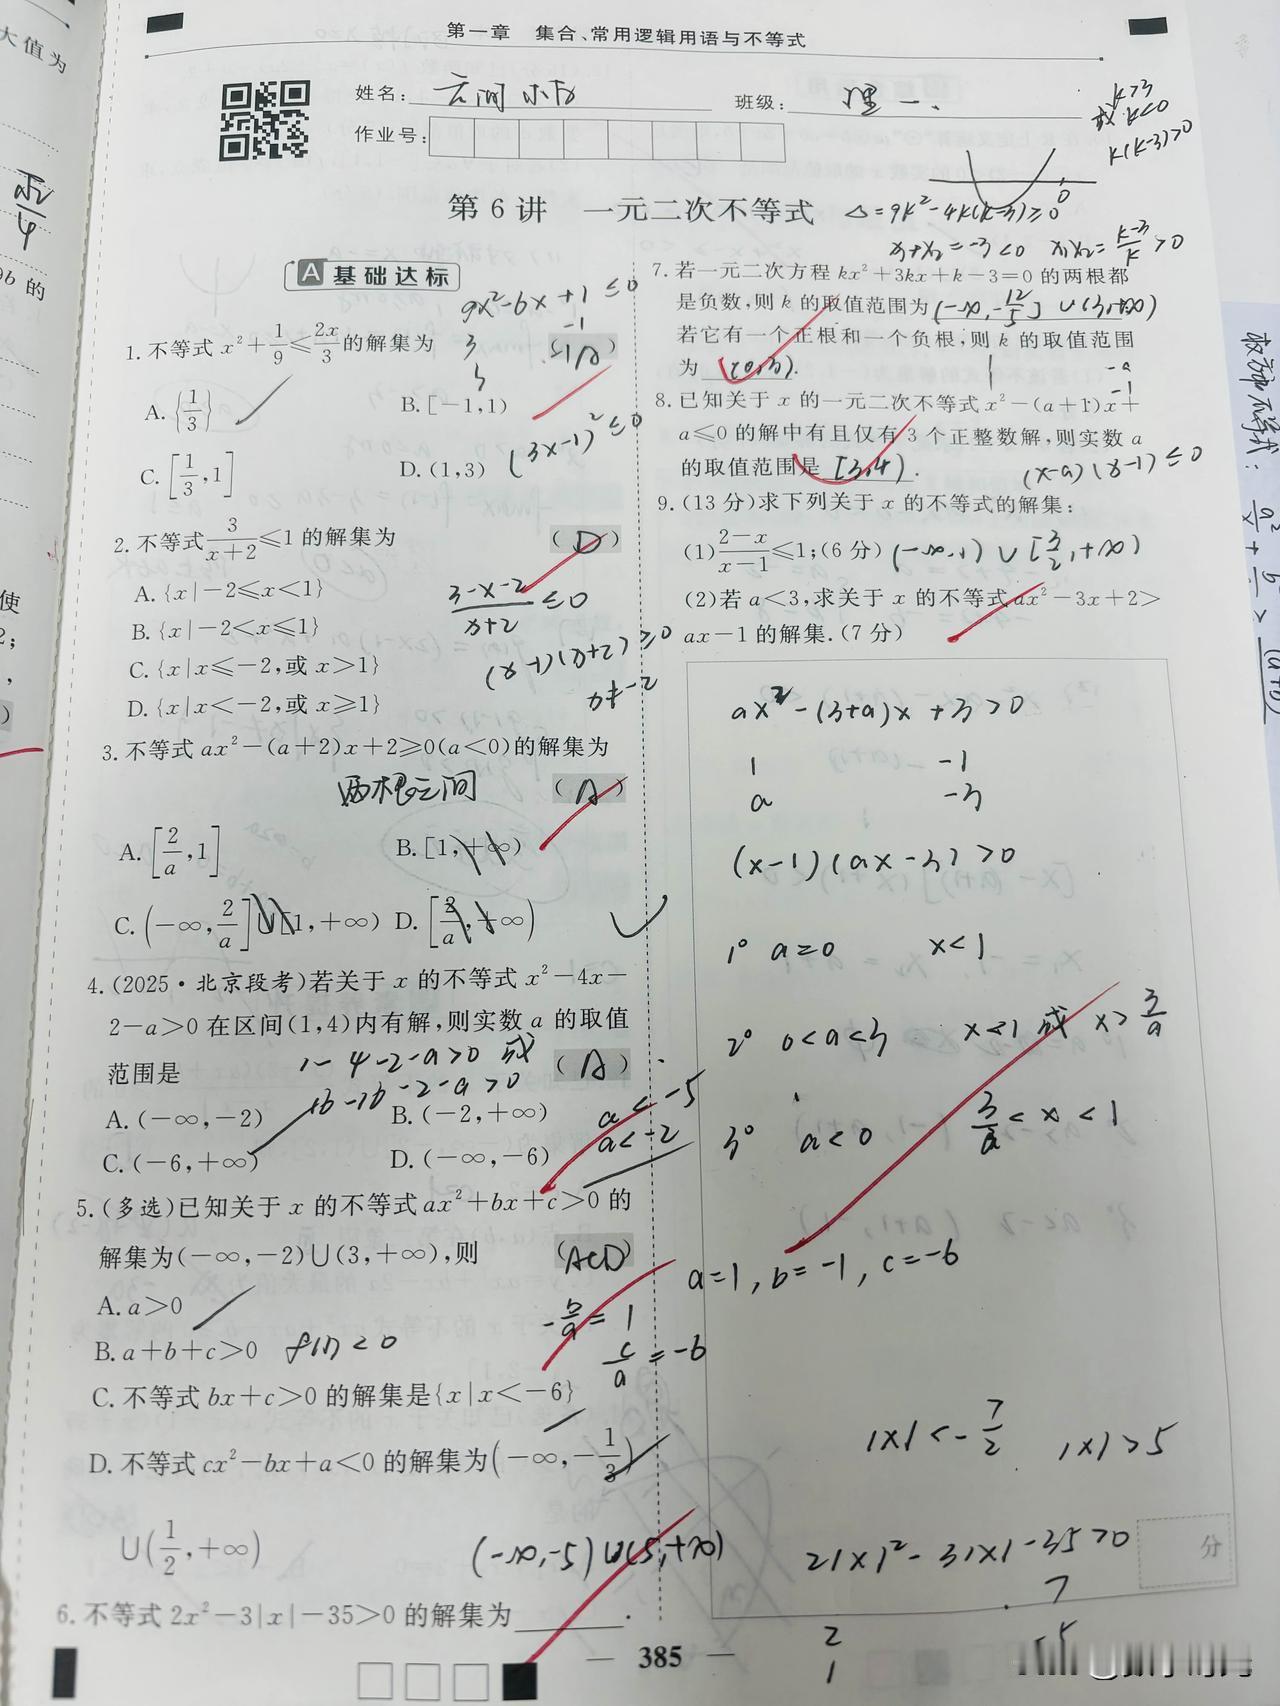 第一章 集合、常用逻辑用语与不等式
大值为
姓名:
班级: 理一.
作业号:
k>3
或 k<0
k(k-3)>0
0
第6讲 一元二次不等式
△=9k²-4k(k-3)≥0
x₁+x₂=-3<0 x₁x₂=\frac{k-3}{k}>0
√2/4
9b 的
使
2;
A 基础达标
9x²-6x+1≤0
3 -1
3 -1
(3x-1)²≤0
1.不等式 x²+\frac{1}{9}≤\frac{2x}{3}的解集为 (A)
A.{\frac{1}{3}} B.[-1,1)
C.[\frac{1}{3},1] D.(1,3)
2.不等式\frac{3}{x+2}≤1 的解集为 (D)
A.{x|-2≤x<1}
B.{x|-2<x≤1}
C.{x|x≤-2,或 x>1}
D.{x|x<-2,或 x≥1}
\frac{3-x-2}{x+2}≤0
(x-1)(x+2)≥0
x≠-2
3.不等式 ax²-(a+2)x+2≥0(a<0)的解集为
两根之间 (A)
A.[\frac{2}{a},1] B.[1,+∞)
C.(-∞,\frac{2}{a}]∪[1,+∞) D.[\frac{2}{a},+∞)
4.(2025·北京段考)若关于 x 的不等式 x²-4x-
2-a>0 在区间(1,4)内有解,则实数 a 的取值
范围是 (A)
1-4-2-a>0 或
16-16-2-a>0
A.(-∞,-2) B.(-2,+∞)
C.(-6,+∞) D.(-∞,-6)
a<-5
a<-2
5.(多选)已知关于 x 的不等式 ax²+bx+c>0 的
解集为(-∞,-2)∪(3,+∞),则 (ACD)
A.a>0
B.a+b+c>0 f(1)<0
C.不等式 bx+c>0 的解集是{x|x<-6}
D.不等式 cx²-bx+a<0 的解集为(-∞,-\frac{1}{3})
∪(\frac{1}{2},+∞)
-\frac{b}{a}=1
\frac{c}{a}=-6
(-∞,-5)∪(5,+∞)
6.不等式 2x²-3|x|-35>0 的解集为________.
7.若一元二次方程 kx²+3kx+k-3=0 的两根都
是负数,则 k 的取值范围为 (-∞,-\frac{12}{5}]∪(3,+∞)
若它有一个正根和一个负根,则 k 的取值范围
为 (0,3).
1 -a
1 -1
8.已知关于 x 的一元二次不等式 x²-(a+1)x+
a≤0 的解中有且仅有 3 个正整数解,则实数 a
的取值范围是 [3,4).
(x-a)(x-1)≤0
9.(13 分)求下列关于 x 的不等式的解集:
(1)\frac{2-x}{x-1}≤1;(6 分) (-∞,1)∪[\frac{3}{2},+∞)
(2)若 a<3,求关于 x 的不等式 ax²-3x+2>
ax-1 的解集.(7 分)
ax²-(3+a)x+3>0
1 -1
a -3
(x-1)(ax-3)>0
1° a=0 x<1
2° 0<a<3 x<1 或 x>\frac{3}{a}
3° a<0 \frac{3}{a}<x<1
a=1,b=-1,c=-6
|x|<-\frac{7}{2} |x|>5
2|x|²-3|x|-35>0
2 7
1 -5
分
385